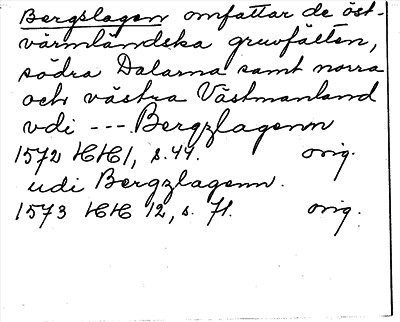 Bergslagen omfattar de öst-
värmländska gruvfälten,
södra Dalarna samt norra
och västra Västmanland
vdi --- Bergzlagenn
1572 HH 1, s. 44. orig.
udi Bergzlagenn.
1573 HH 12, s. 71. orig.